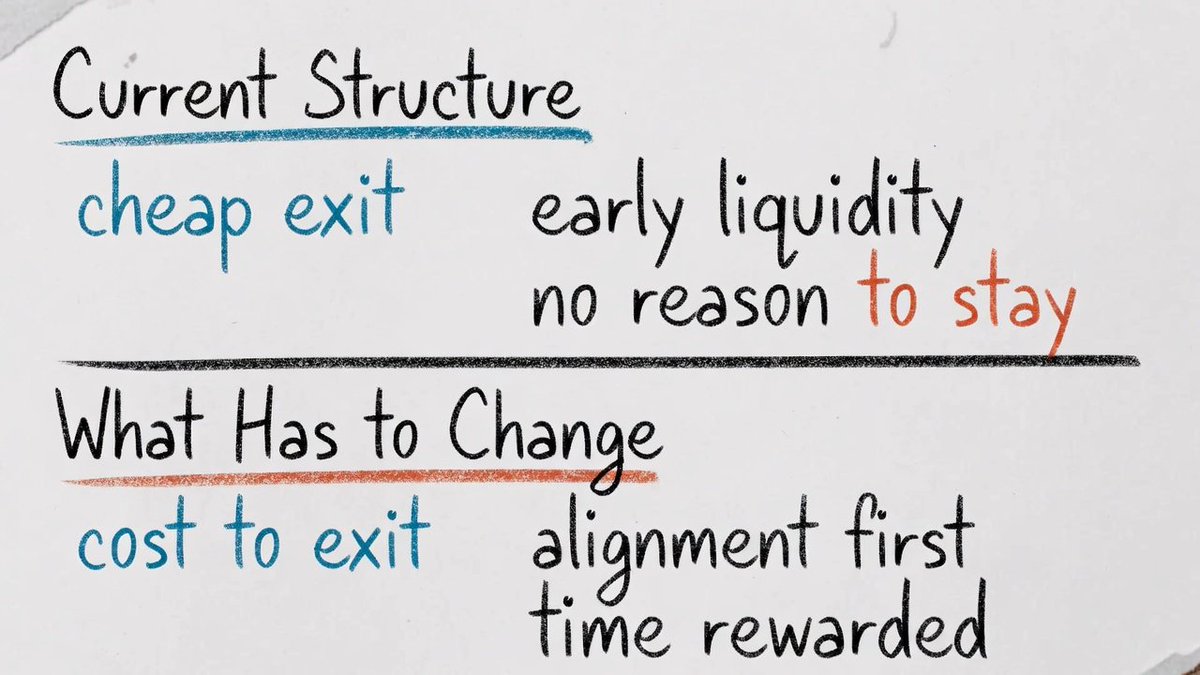 Current Structure
cheap exit
early liquidity
no reason to stay
What Has to Change
cost to exit
alignment first
time rewarded